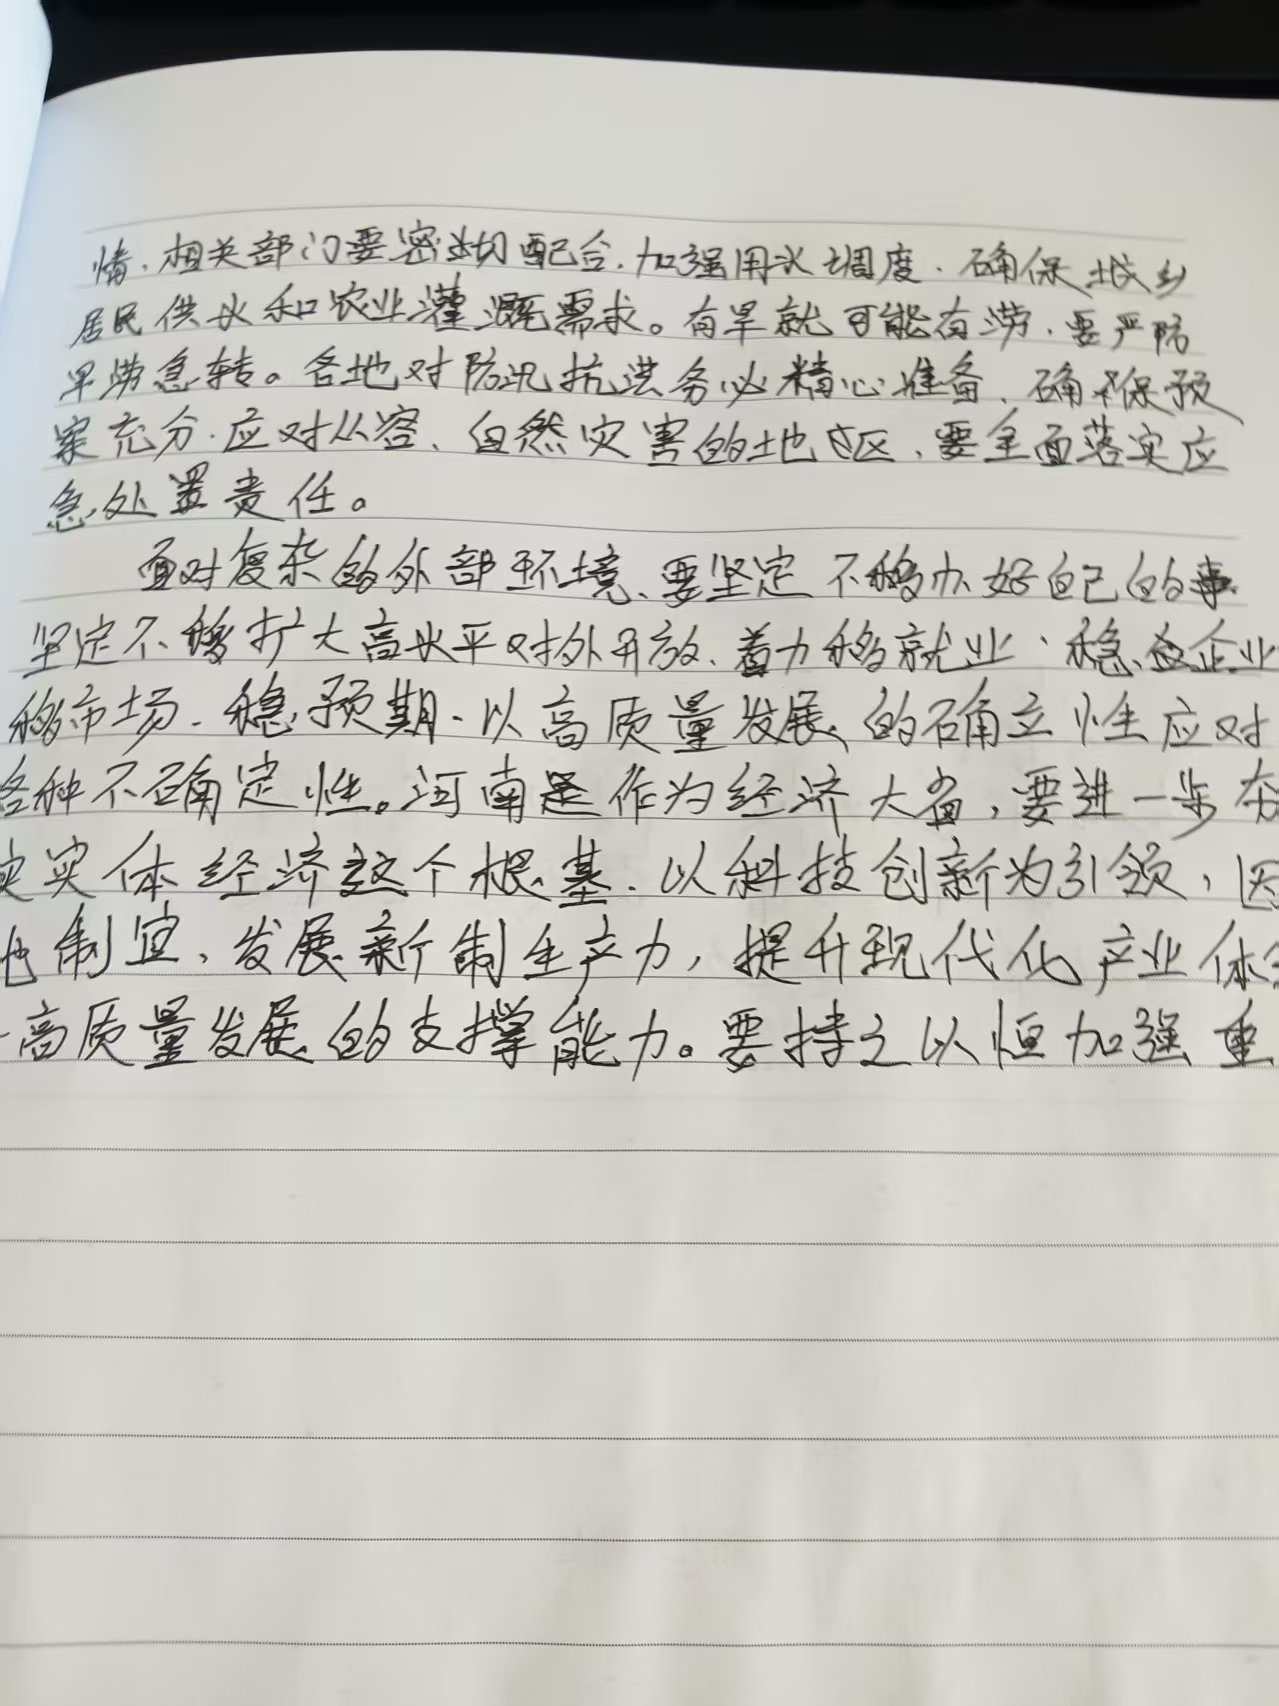 情，相关部门要密切配合，加强用水调度，确保城乡
居民供水和农业灌溉需求。有旱就可能有涝，要严防
旱涝急转。各地对防汛抗洪务必精心准备，确保预
案充分，应对从容，自然灾害的地区，要全面落实应
急处置责任。
面对复杂的外部环境、要坚定不移办好自己的事
坚定不移扩大高水平对外开放、着力移就业、稳企业
移市场、稳预期、以高质量发展的确立性应对
各种不确定性。河南是作为经济大省，要进一步夯
实实体经济这个根基，以科技创新为引领，因
地制宜，发展新制生产力，提升现代化产业体系
高质量发展的支撑能力。要持之以恒加强重